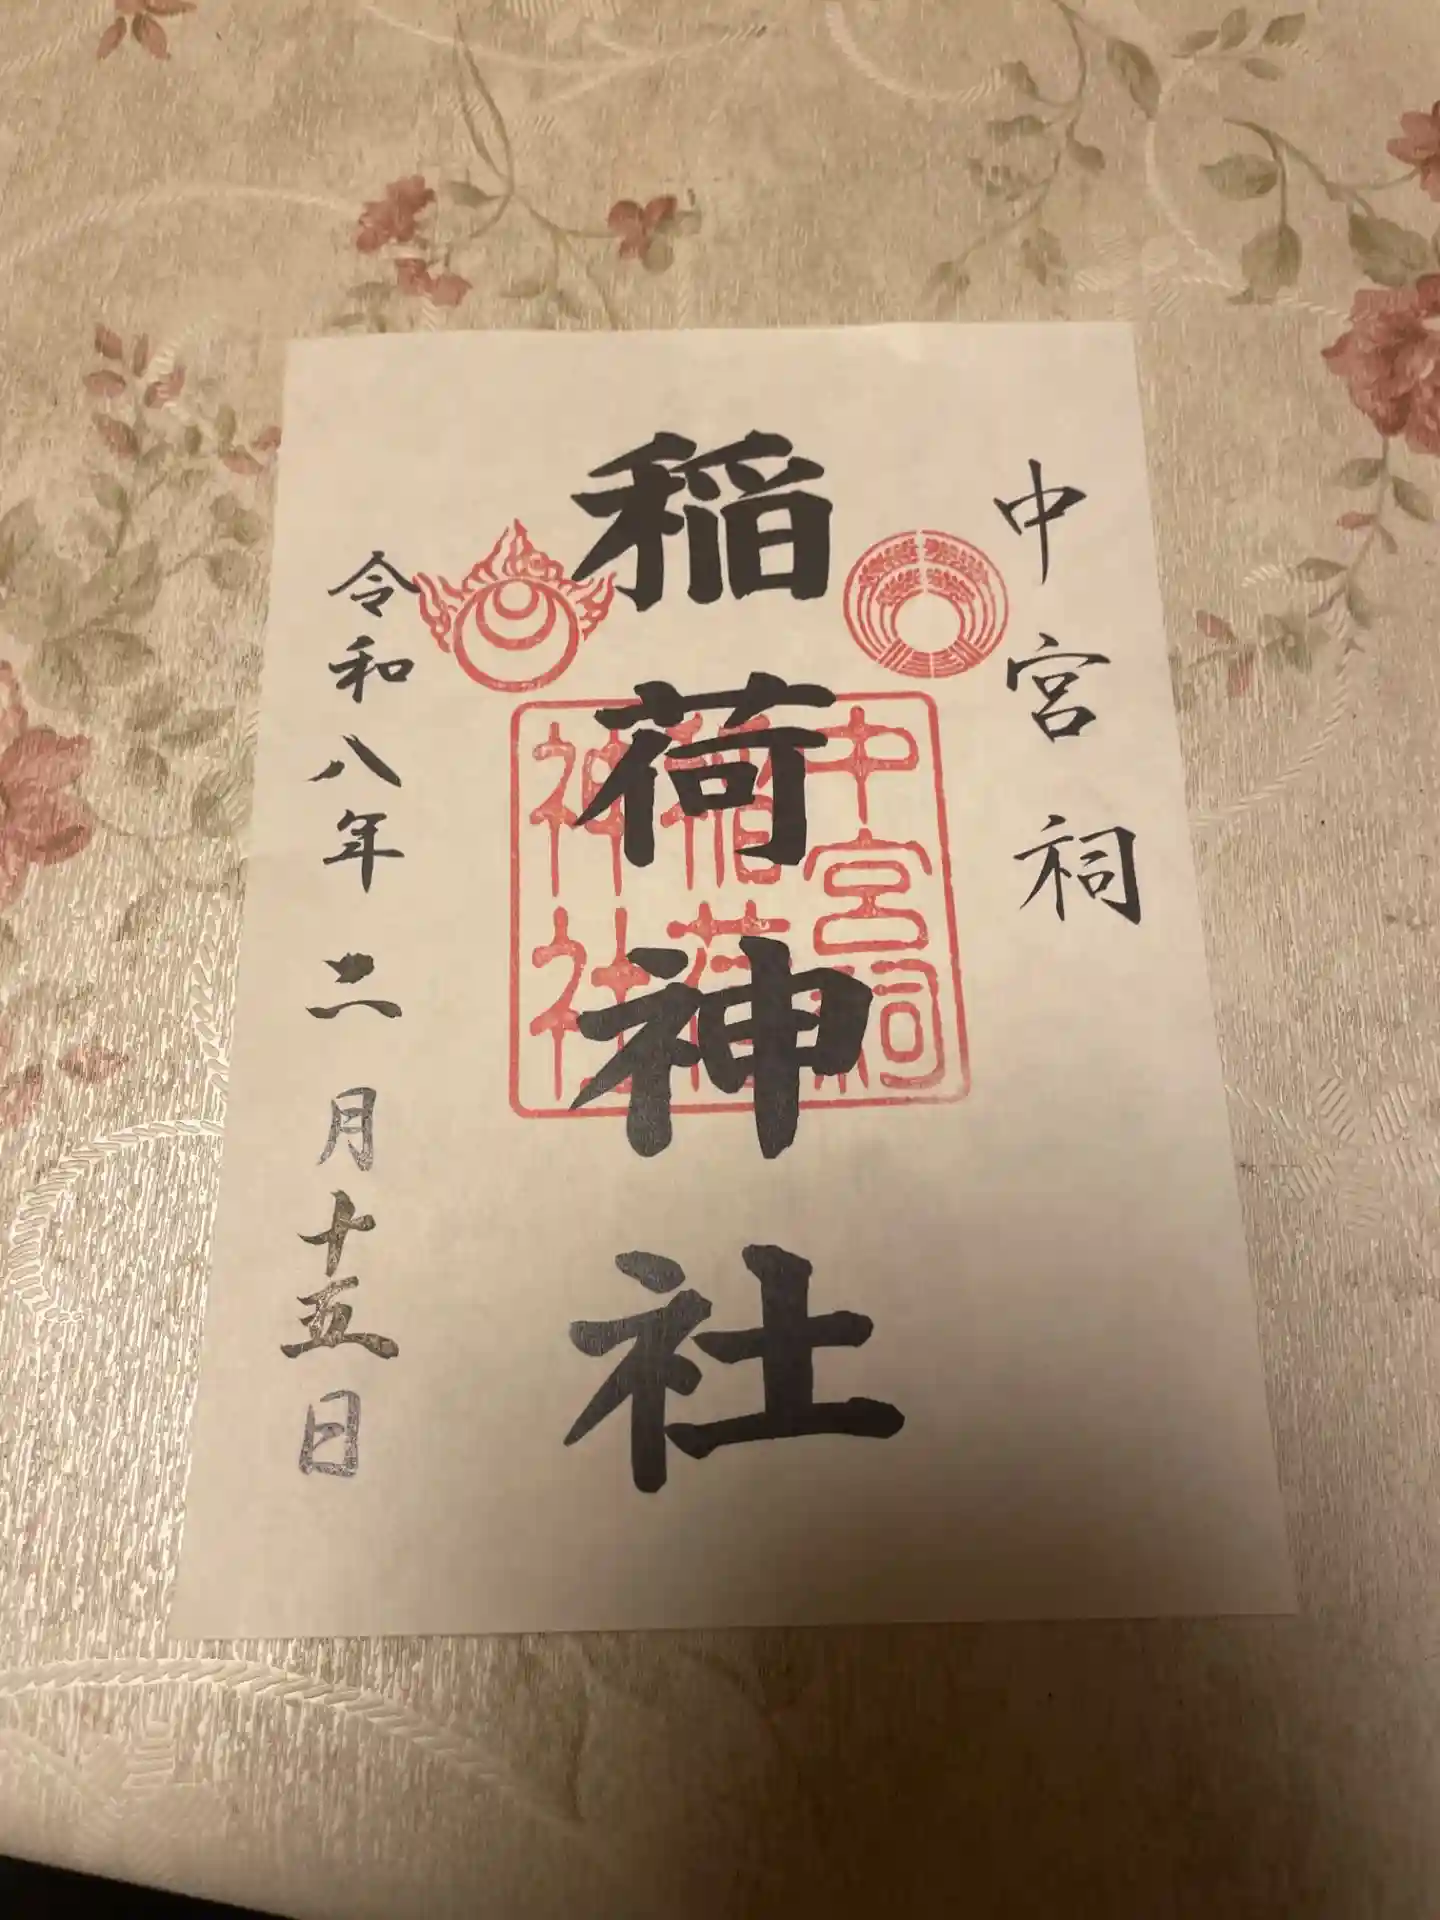 中宮祠
稲荷神社
中宮祠
稲荷
神社
令和八年二月十五日